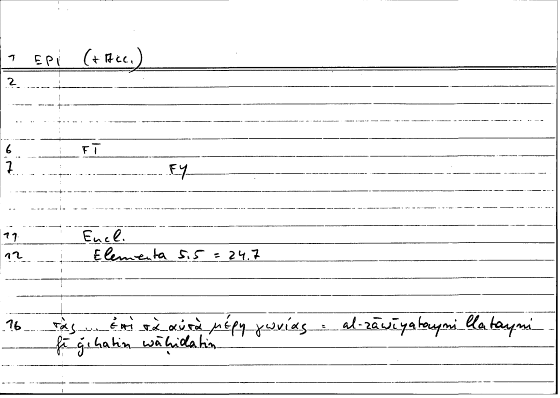 1 EPI (+ Acc.)
2
6 FĪ
7 FY
11 Eucl.
12 Elementa 5.5 = 24.7
16 τὰς ... ἐπὶ τὰ αὐτὰ μέρη γωνίας = al-zāwiyatayni llatayni
fī ǧihatin wāḥidatin